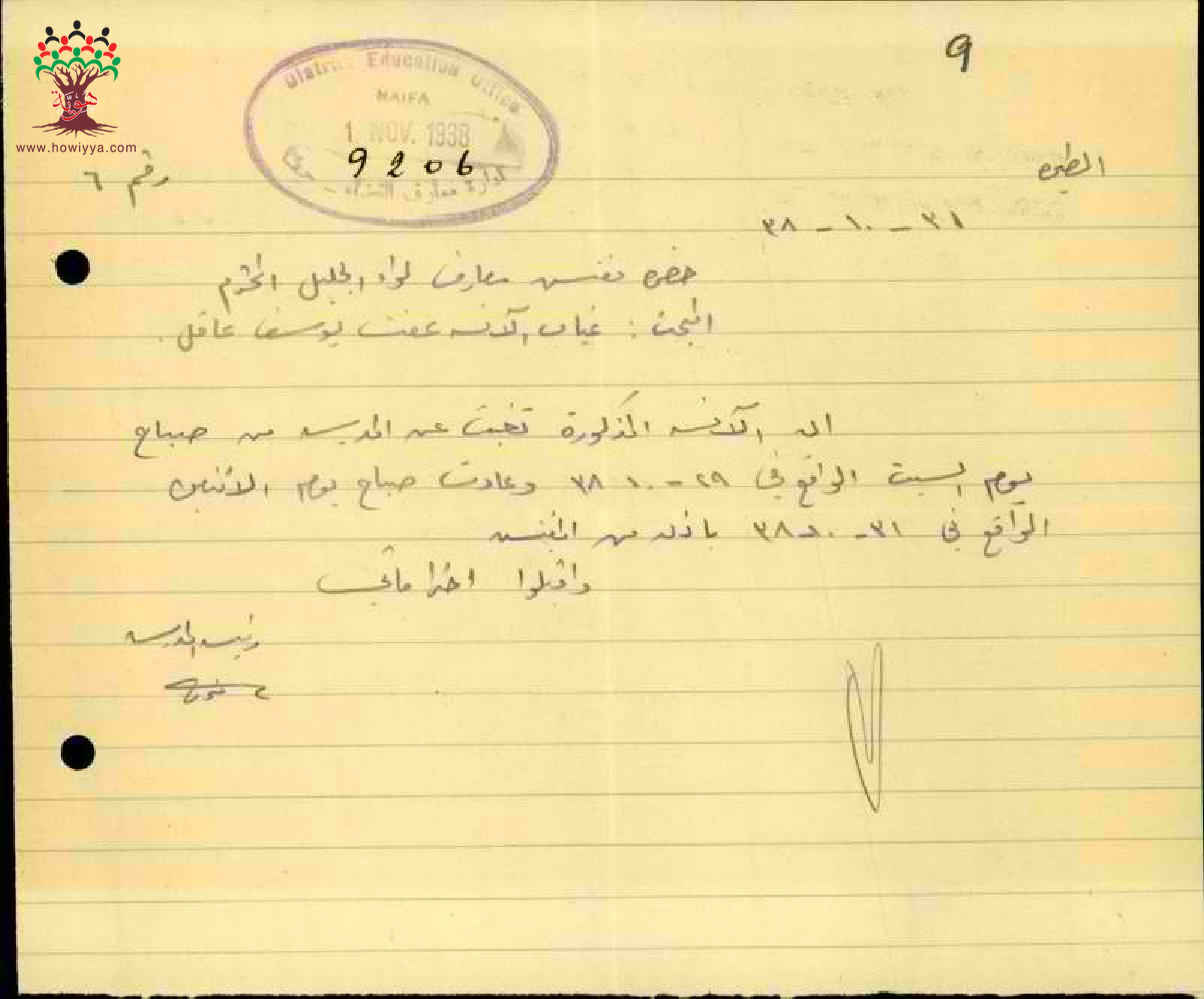 9
هوية
www.howiyya.com
District Education Office
HAIFA
1 NOV. 1938
9206
ادارة معارف اللواء - حيفا
الطيره
رقم ٦
٣١ - ١٠ - ٣٨
حضرة مفتش معارف لواء الجليل المحترم
البحث : غياب الآنسه عفت يوسف عاقل .
ان الآنسه المذكورة تغيبت عن المدرسه من صباح
يوم السبت الواقع في ٢٩ - ١٠ ٣٨ وعادت صباح يوم الاثنين
الواقع في ٣١ - ١٠ - ٣٨ باذن من المفتش
واقبلوا احتراماتي
رئيسة المدرسه